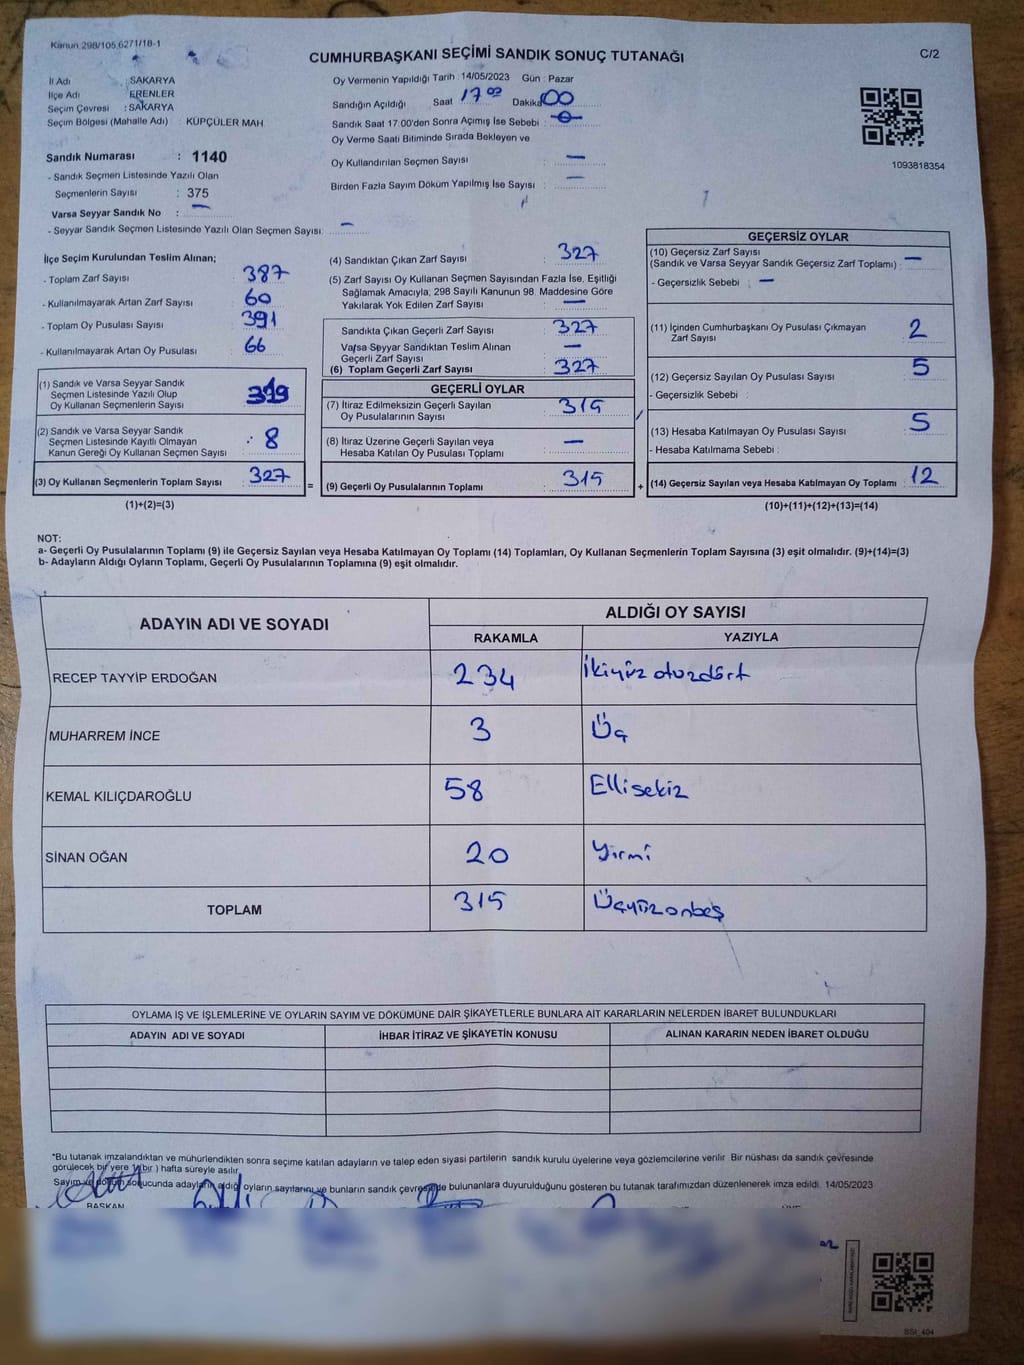 Kanun 298/105,6271/18-1
CUMHURBAŞKANI SEÇİMİ SANDIK SONUÇ TUTANAĞI
C/2
İl Adı : SAKARYA
İlçe Adı : ERENLER
Seçim Çevresi : SAKARYA
Seçim Bölgesi (Mahalle Adı) : KÜPÇÜLER MAH
Sandık Numarası : 1140
- Sandık Seçmen Listesinde Yazılı Olan
Seçmenlerin Sayısı : 375
Varsa Seyyar Sandık No : —
- Seyyar Sandık Seçmen Listesinde Yazılı Olan Seçmen Sayısı: —
Oy Vermenin Yapıldığı Tarih : 14/05/2023 Gün : Pazar
Sandığın Açıldığı Saat 17 00 Dakika 00
Sandık Saat 17:00'den Sonra Açımış İse Sebebi :
Oy Verme Saati Bitiminde Sırada Bekleyen ve
Oy Kullandırılan Seçmen Sayısı : —
Birden Fazla Sayım Döküm Yapılmış İse Sayısı : —
1093818354
İlçe Seçim Kurulundan Teslim Alınan;
- Toplam Zarf Sayısı : 387
- Kullanılmayarak Artan Zarf Sayısı : 60
- Toplam Oy Pusulası Sayısı : 391
- Kullanılmayarak Artan Oy Pusulası : 66
(1) Sandık ve Varsa Seyyar Sandık
Seçmen Listesinde Yazılı Olup
Oy Kullanan Seçmenlerin Sayısı : 319
(2) Sandık ve Varsa Seyyar Sandık
Seçmen Listesinde Kayıtlı Olmayan
Kanun Gereği Oy Kullanan Seçmen Sayısı : 8
(3) Oy Kullanan Seçmenlerin Toplam Sayısı : 327 =
(1)+(2)=(3)
(4) Sandıktan Çıkan Zarf Sayısı : 327
(5) Zarf Sayısı Oy Kullanan Seçmen Sayısından Fazla İse, Eşitliği
Sağlamak Amacıyla, 298 Sayılı Kanunun 98. Maddesine Göre
Yakılarak Yok Edilen Zarf Sayısı : —
Sandıkta Çıkan Geçerli Zarf Sayısı : 327
Varsa Seyyar Sandıktan Teslim Alınan
Geçerli Zarf Sayısı : —
(6) Toplam Geçerli Zarf Sayısı : 327
GEÇERLİ OYLAR
(7) İtiraz Edilmeksizin Geçerli Sayılan
Oy Pusulalarının Sayısı : 315
(8) İtiraz Üzerine Geçerli Sayılan veya
Hesaba Katılan Oy Pusulası Toplamı : —
(9) Geçerli Oy Pusulalarının Toplamı : 315 +
GEÇERSİZ OYLAR
(10) Geçersiz Zarf Sayısı
(Sandık ve Varsa Seyyar Sandık Geçersiz Zarf Toplamı) : —
- Geçersizlik Sebebi : —
(11) İçinden Cumhurbaşkanı Oy Pusulası Çıkmayan
Zarf Sayısı : 2
(12) Geçersiz Sayılan Oy Pusulası Sayısı : 5
- Geçersizlik Sebebi :
(13) Hesaba Katılmayan Oy Pusulası Sayısı : 5
- Hesaba Katılmama Sebebi :
(14) Geçersiz Sayılan veya Hesaba Katılmayan Oy Toplamı : 12
(10)+(11)+(12)+(13)=(14)
NOT:
a- Geçerli Oy Pusulalarının Toplamı (9) ile Geçersiz Sayılan veya Hesaba Katılmayan Oy Toplamı (14) Toplamları, Oy Kullanan Seçmenlerin Toplam Sayısına (3) eşit olmalıdır. (9)+(14)=(3)
b- Adayların Aldığı Oyların Toplamı, Geçerli Oy Pusulalarının Toplamına (9) eşit olmalıdır.
ADAYIN ADI VE SOYADI
ALDIĞI OY SAYISI
RAKAMLA YAZIYLA
RECEP TAYYİP ERDOĞAN 234 İkiyüz otuzdört
MUHARREM İNCE 3 Üç
KEMAL KILIÇDAROĞLU 58 Ellisekiz
SİNAN OĞAN 20 Yirmi
TOPLAM 315 Üçyüzonbeş
OYLAMA İŞ VE İŞLEMLERİNE VE OYLARIN SAYIM VE DÖKÜMÜNE DAİR ŞİKAYETLERLE BUNLARA AİT KARARLARIN NELERDEN İBARET BULUNDUKLARI
ADAYIN ADI VE SOYADI İHBAR İTİRAZ VE ŞİKAYETİN KONUSU ALINAN KARARIN NEDEN İBARET OLDUĞU
*Bu tutanak imzalandıktan ve mühürlendikten sonra seçime katılan adayların ve talep eden siyasi partilerin sandık kurulu üyelerine veya gözlemcilerine verilir. Bir nüshası da sandık çevresinde
görülecek bir yere 1(bir) hafta süreyle asılır.
Sayım ve döküm sonucunda adayların aldığı oyların sayılarını ve bunların sandık çevresinde bulunanlara duyurulduğunu gösteren bu tutanak tarafımızdan düzenlenerek imza edildi. 14/05/2023
BAŞKAN
SSI_404